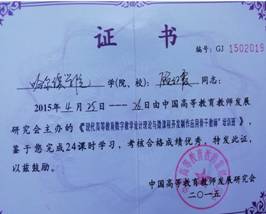 证 书
编号：GJ 1502019
哈尔滨学院 学(院、校)： 同志：
2015年4月25日——26日由中国高等教育教师发展
研究会主办的《现代高等教育数字教学设计理论与微课程开发制作应用骨干教师"培训班》，
鉴于您完成24课时学习，考核合格成绩优秀，特发此证，
以兹鼓励。
中国高等教育教师发展研究会
二〇一五